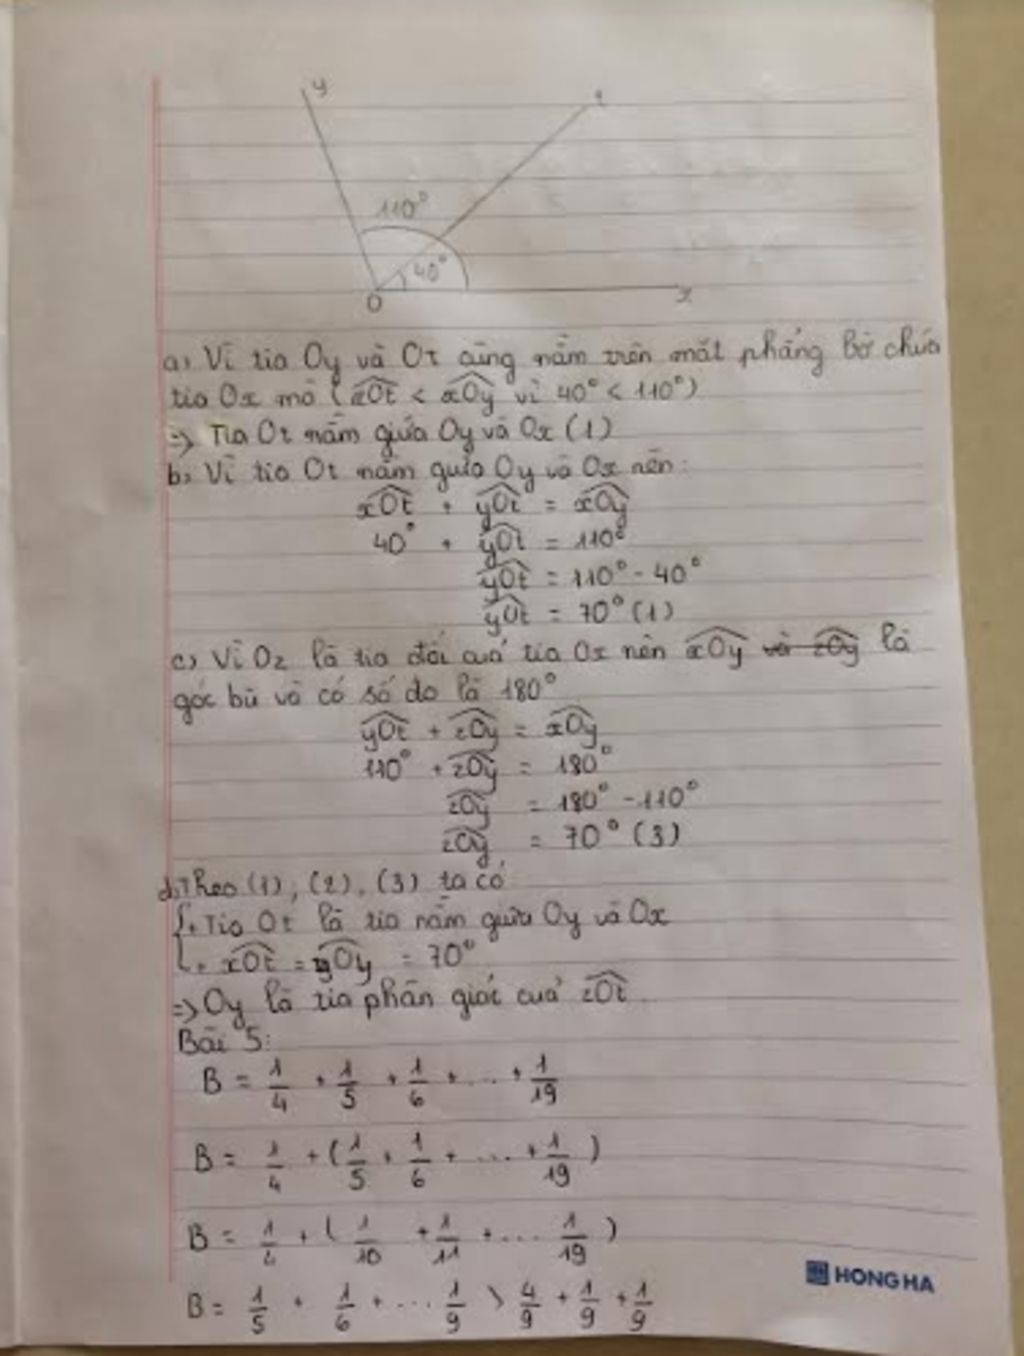 y
t
110°
40°
O
x
a, Vì tia Oy và Ot cùng nằm trên mặt phẳng bờ chứa
tia Ox mà (xOt < xOy vì 40° < 110°)
=> Tia Ot nằm giữa Oy và Ox (1)
b, Vì tia Ot nằm giữa Oy và Ox nên:
xOt + yOt = xOy
40° + yOt = 110°
yOt = 110° - 40°
yOt = 70° (1)
c, Vì Oz là tia đối của tia Ox nên xOy và zOy là
góc bù và có số đo là 180°
yOt + zOy = xOy
110° + zOy = 180°
zOy = 180° - 110°
zOy = 70° (3)
d, Theo (1), (2), (3) ta có
{ + Tia Ot là tia nằm giữa Oy và Ox
+ xOt = yOy = 70°
=> Oy là tia phân giác của zOt.
Bài 5:
B = 1/4 + 1/5 + 1/6 + ... + 1/19
B = 1/4 + (1/5 + 1/6 + ... + 1/19)
B = 1/4 + (1/10 + 1/11 + ... 1/19)
HONG HA
B = 1/5 + 1/6 + ... 1/9 > 4/9 + 1/9 + 1/9